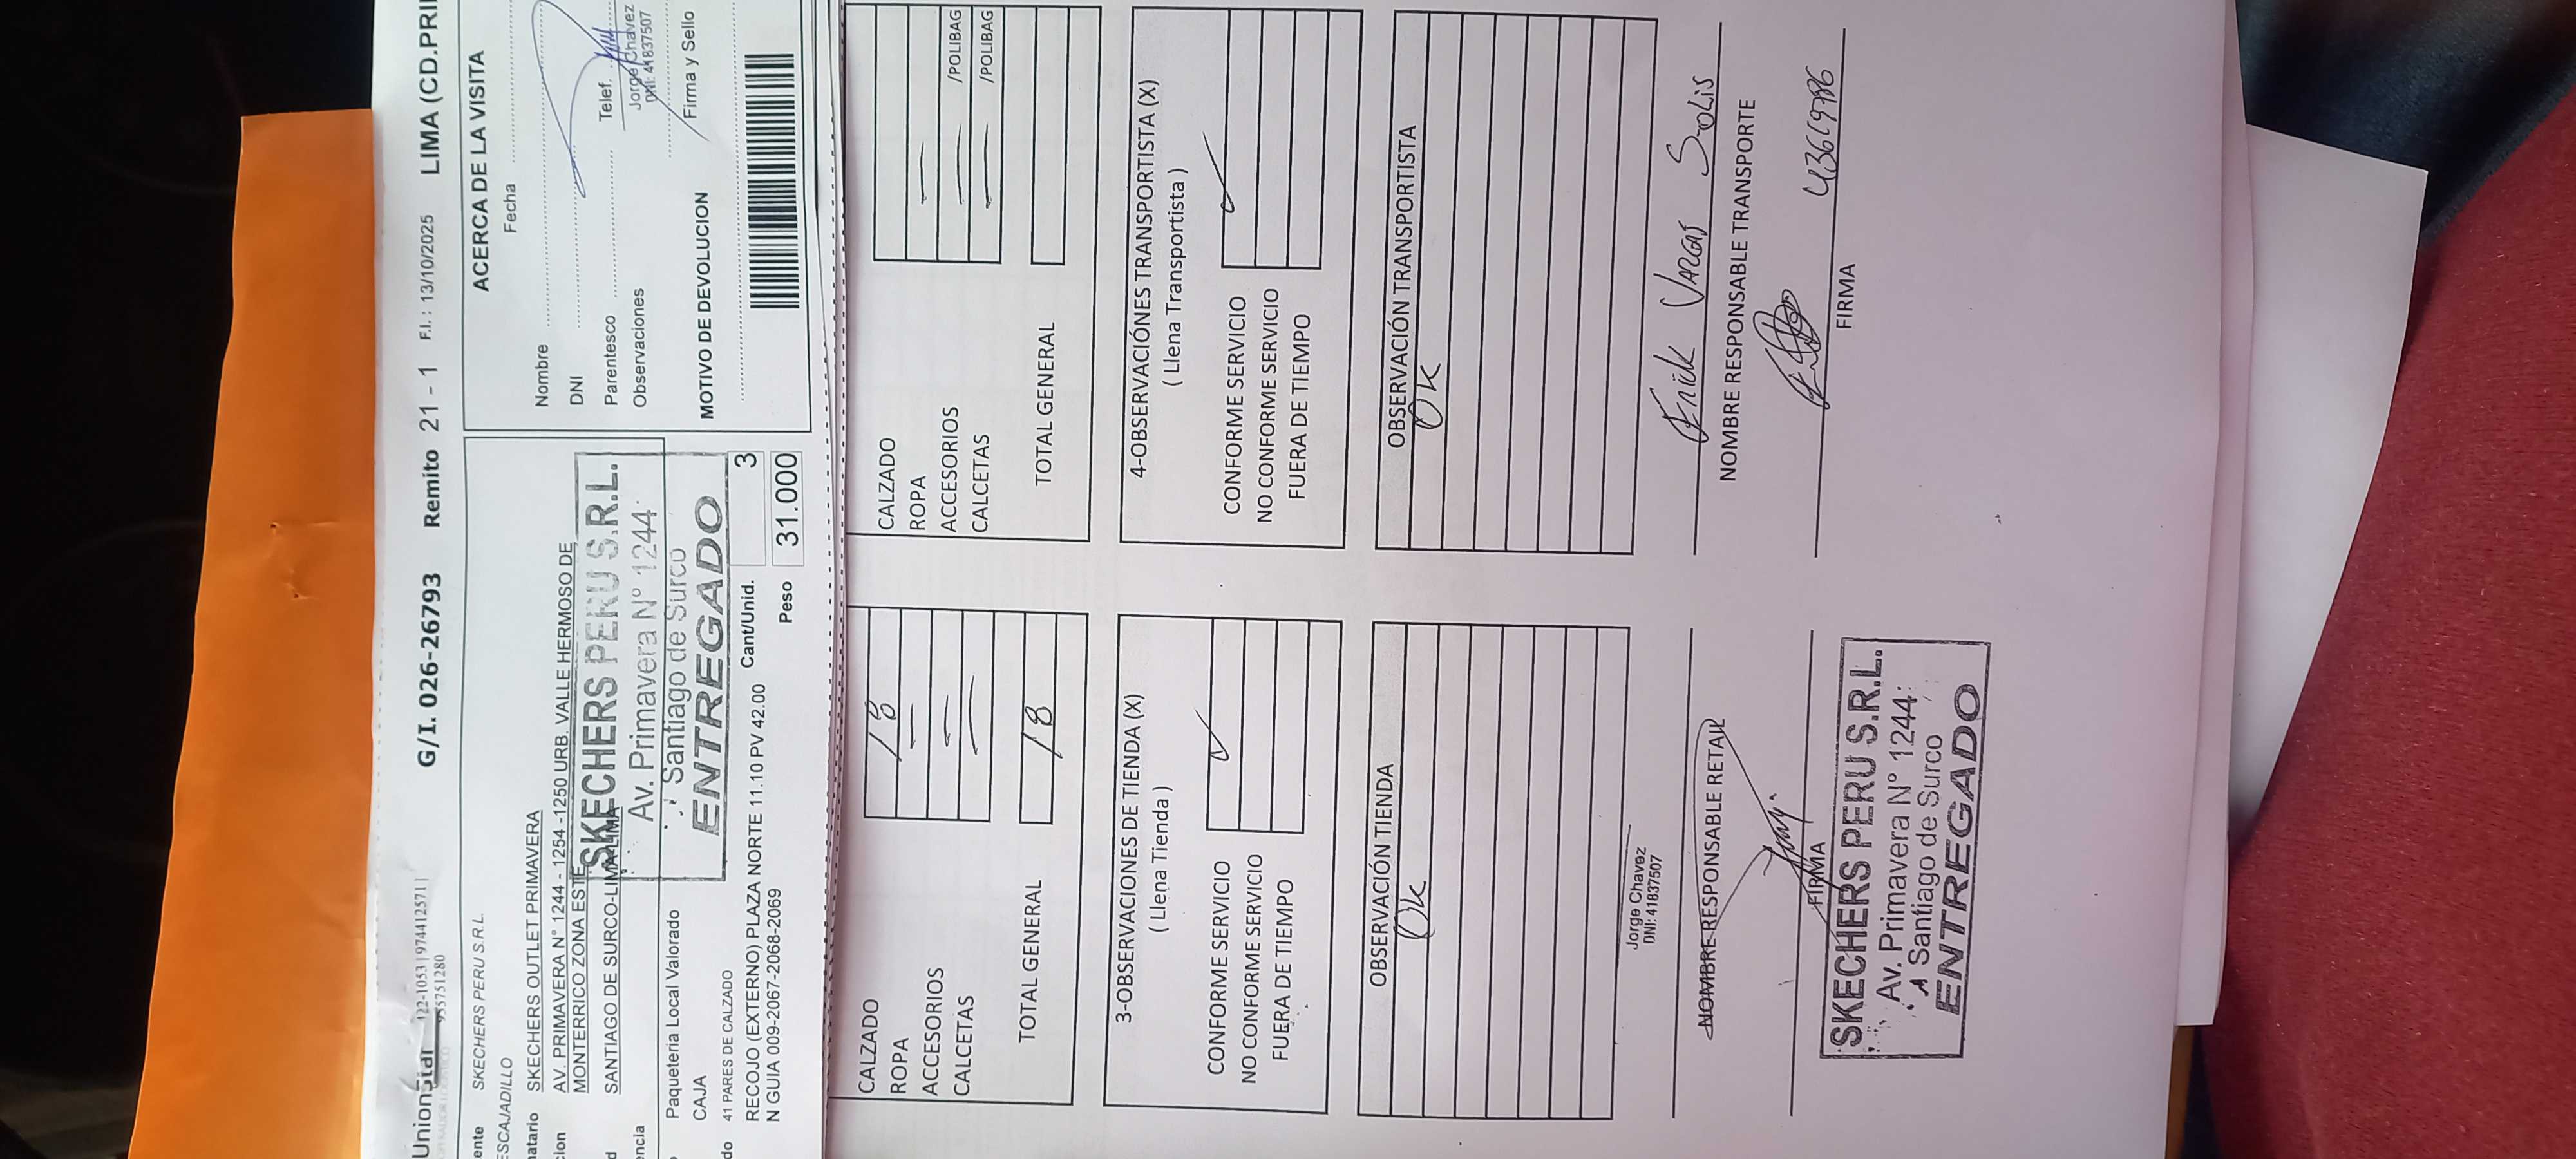 UnionStar 122-1053 | 974412571 |
955751280
G/I. 026-26793 Remito 21 - 1 F.I. : 13/10/2025 LIMA (CD.PRI
ente SKECHERS PERU S.R.L.
ESCAJADILLO
natario SKECHERS OUTLET PRIMAVERA
cion AV. PRIMAVERA N° 1244 - 1254 -1250 URB. VALLE HERMOSO DE
MONTERRICO ZONA ESTE
d SANTIAGO DE SURCO-LIMA-LIMA
encia
SKECHERS PERU S.R.L.
Av. Primavera N° 1244
Santiago de Surco
ENTREGADO
Paqueteria Local Valorado
CAJA
do 41 PARES DE CALZADO
RECOJO (EXTERNO) PLAZA NORTE 11.10 PV 42.00
N GUIA 009-2067-2068-2069
Cant/Unid. 3
Peso 31.000
ACERCA DE LA VISITA
Fecha
Nombre
DNI
Parentesco Telef.
Observaciones
Jorge Chavez
DNI: 41837507
Firma y Sello
MOTIVO DE DEVOLUCION
CALZADO 18
ROPA —
ACCESORIOS —
CALCETAS —
TOTAL GENERAL 18
CALZADO
ROPA —
ACCESORIOS — /POLIBAG
CALCETAS — /POLIBAG
TOTAL GENERAL
3-OBSERVACIONES DE TIENDA (X)
( Llena Tienda )
CONFORME SERVICIO ✓
NO CONFORME SERVICIO
FUERA DE TIEMPO
4-OBSERVACIÓNES TRANSPORTISTA (X)
( Llena Transportista )
CONFORME SERVICIO ✓
NO CONFORME SERVICIO
FUERA DE TIEMPO
OBSERVACIÓN TIENDA
Ok
OBSERVACIÓN TRANSPORTISTA
OK
Jorge Chavez
DNI: 41837507
NOMBRE RESPONSABLE RETAIL
FIRMA
SKECHERS PERU S.R.L.
Av. Primavera N° 1244
Santiago de Surco
ENTREGADO
Erick Vargas Solis
NOMBRE RESPONSABLE TRANSPORTE
FIRMA